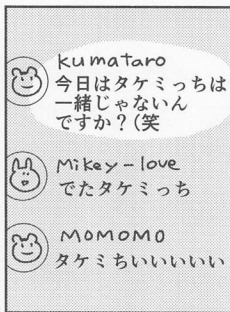 kumataro
今日はタケミっちは
一緒じゃないん
ですか？(笑
Mikey-love
でたタケミっち
MOMOMO
タケミちいいいいい